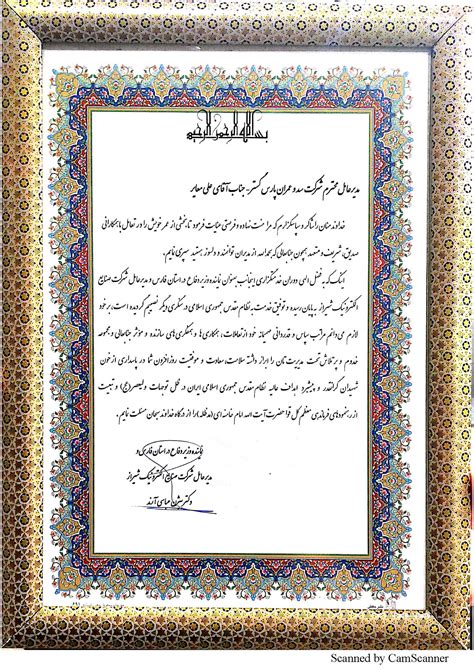 بسم الله الرحمن الرحیم
مدیرعامل محترم شرکت سد و عمران پارس گستر - جناب آقای علی معایر
خداوند منان را شاکر و سپاسگزارم که مرا منت نهاده و فرصتی عنایت فرمود تا بخشی از عمر خویش را در تعامل با همکارانی
صدیق، شریف و متعهد همچون جنابعالی که بحمدالله از مدیران توانمند و دلسوز هستید سپری نمایم.
اینک که به فضل الهی دوران خدمتگزاری اینجانب بعنوان نماینده وزیر دفاع در استان فارس و مدیرعامل شرکت صنایع
الکترونیک شیراز به پایان رسیده و توفیق خدمت به نظام مقدس جمهوری اسلامی در سنگری دیگر نصیبم گردیده است، بر خود
لازم می‌دانم مراتب سپاس و قدردانی صمیمانه خود از تعاملات، همکاری‌ها و همفکری‌های سازنده و موثر جنابعالی و مجموعه
خدوم و پرتلاش تحت مدیریت‌تان را ابراز داشته سلامت، سعادت و موفقیت روزافزون شما در پاسداری از خون
شهیدان گرانقدر و پیشبرد اهداف عالیه نظام مقدس جمهوری اسلامی ایران در ظل توجهات ولیعصر (عج) و تبعیت
از رهنمودهای فرماندهی معظم کل قوا حضرت آیت الله امام خامنه‌ای (مدظله) را از درگاه خداوند سبحان مسئلت نمایم.
نماینده وزیر دفاع در استان فارس و
مدیرعامل شرکت صنایع الکترونیک شیراز
دکتر بیژن عباسی آرند
Scanned by CamScanner